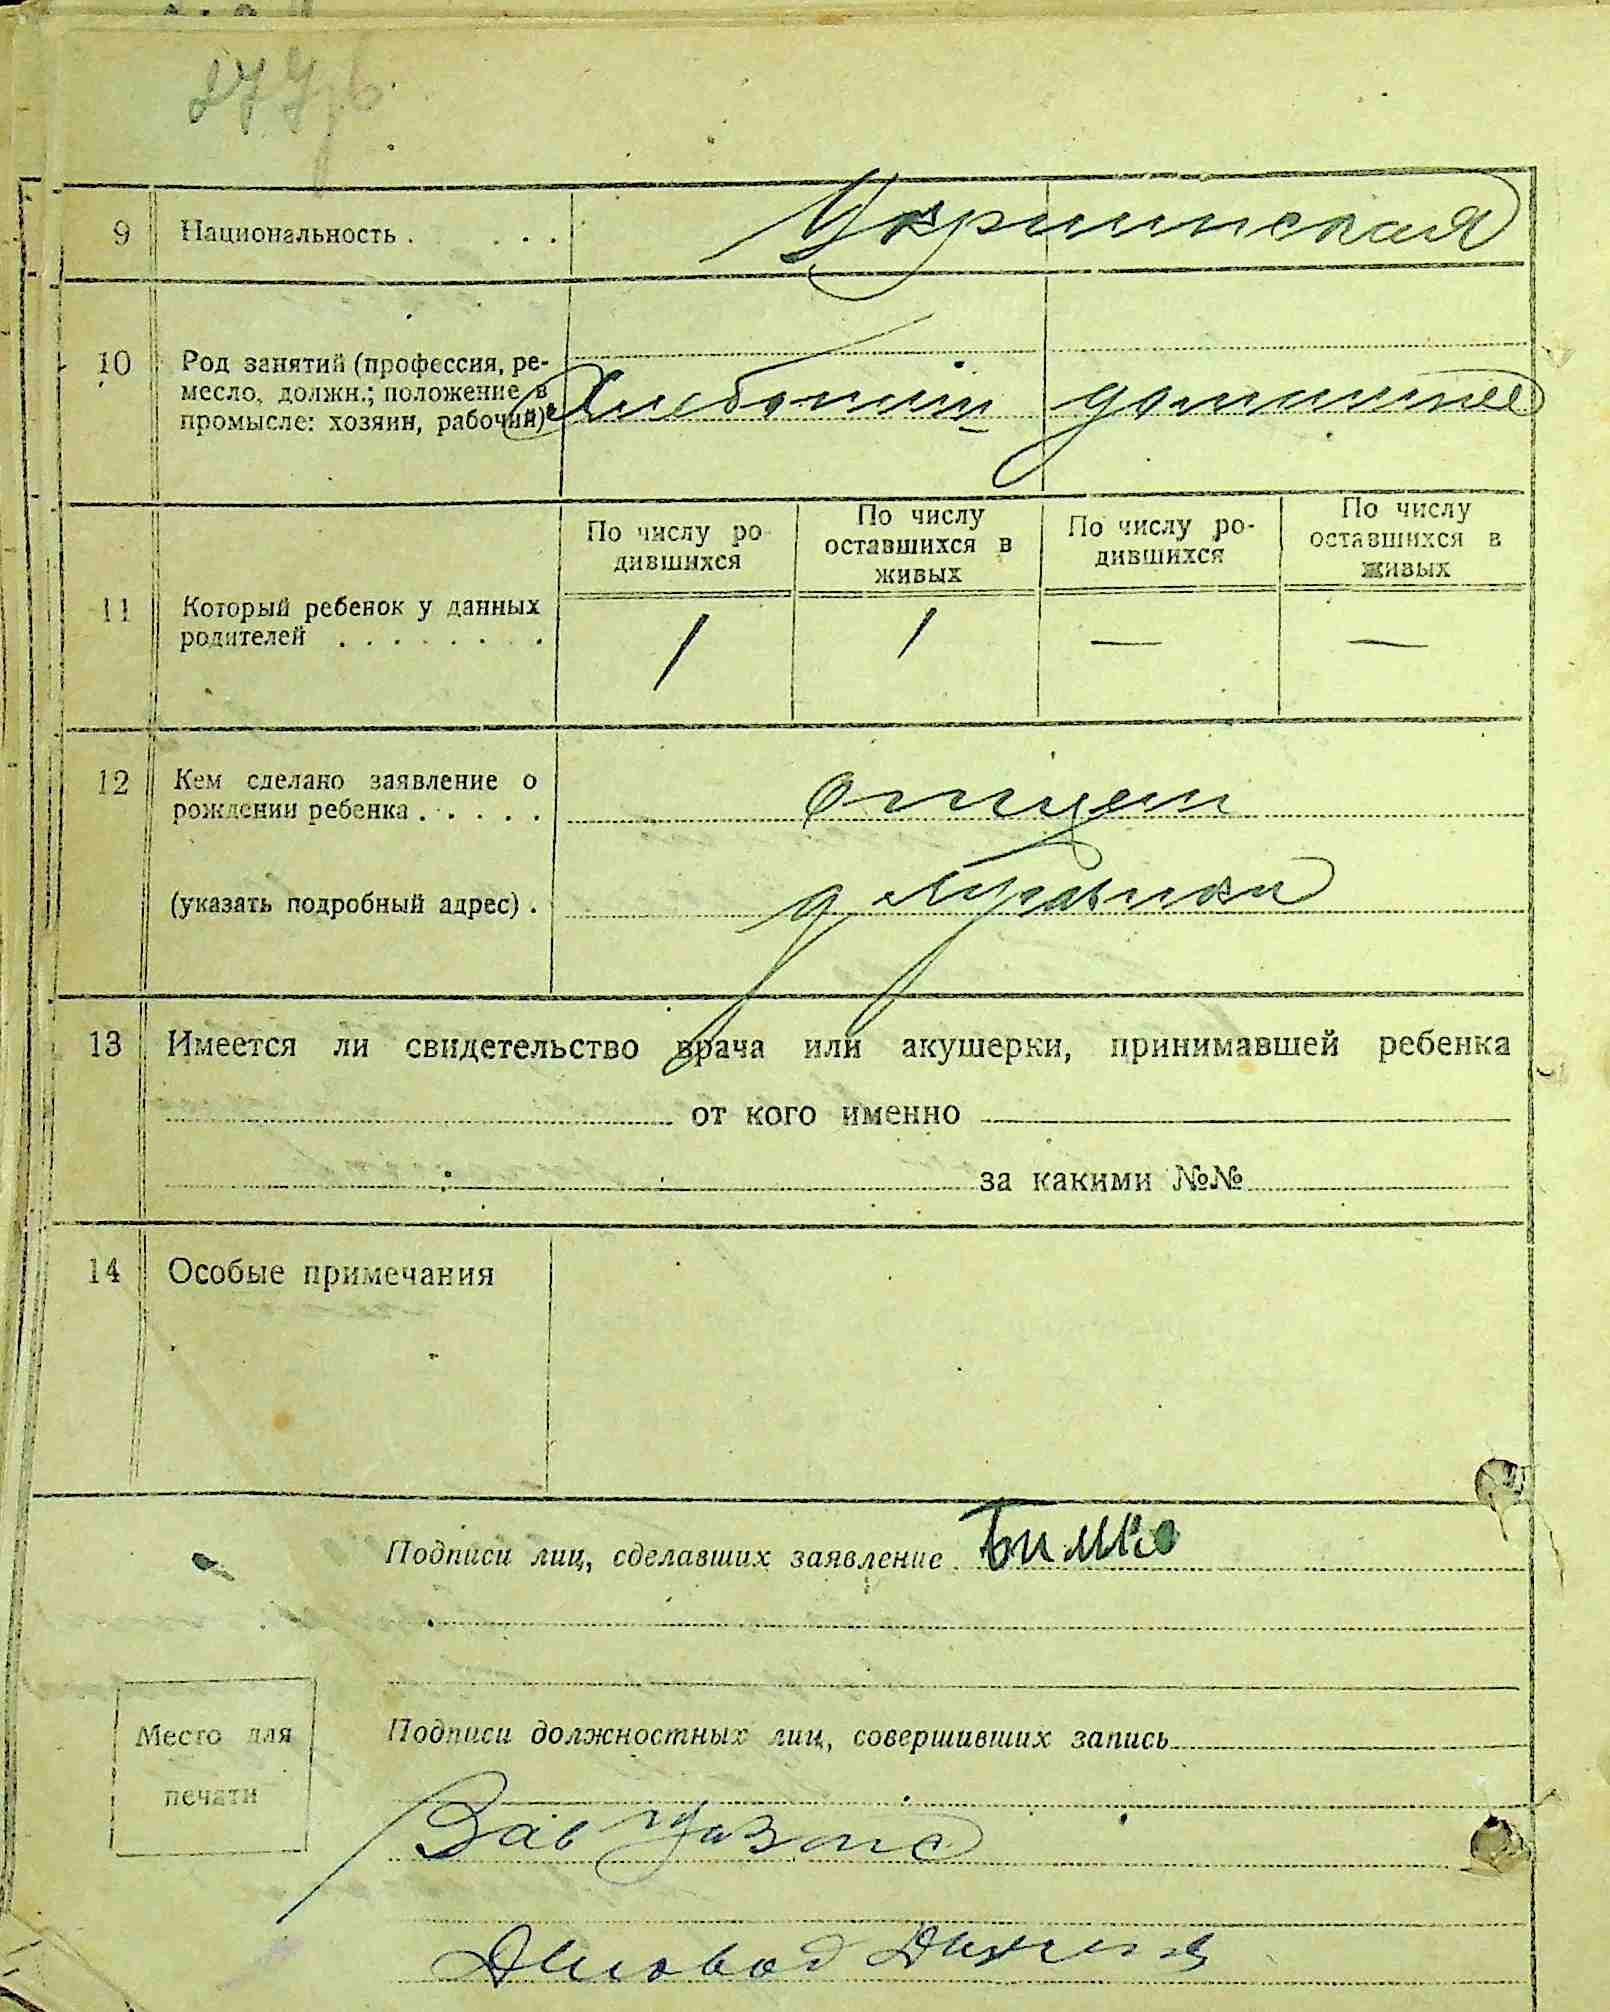 9 Национальность . . . . Украинская
10 Род занятий (профессия, ре-
месло, должн.; положение в
промысле: хозяин, рабочий)
домашнее
По числу ро-
дившихся
По числу
оставшихся в
живых
По числу ро-
дившихся
По числу
оставшихся в
живых
11 Который ребенок у данных
родителей . . . . . . . .
1 1 — —
12 Кем сделано заявление о
рождении ребенка . . . . . отцем
(указать подробный адрес) .
13 Имеется ли свидетельство врача или акушерки, принимавшей ребенка
от кого именно
за какими №№
14 Особые примечания
Подписи лиц, сделавших заявление Бимко
Место для
печати
Подписи должностных лиц, совершивших запись
Зав
Диловод